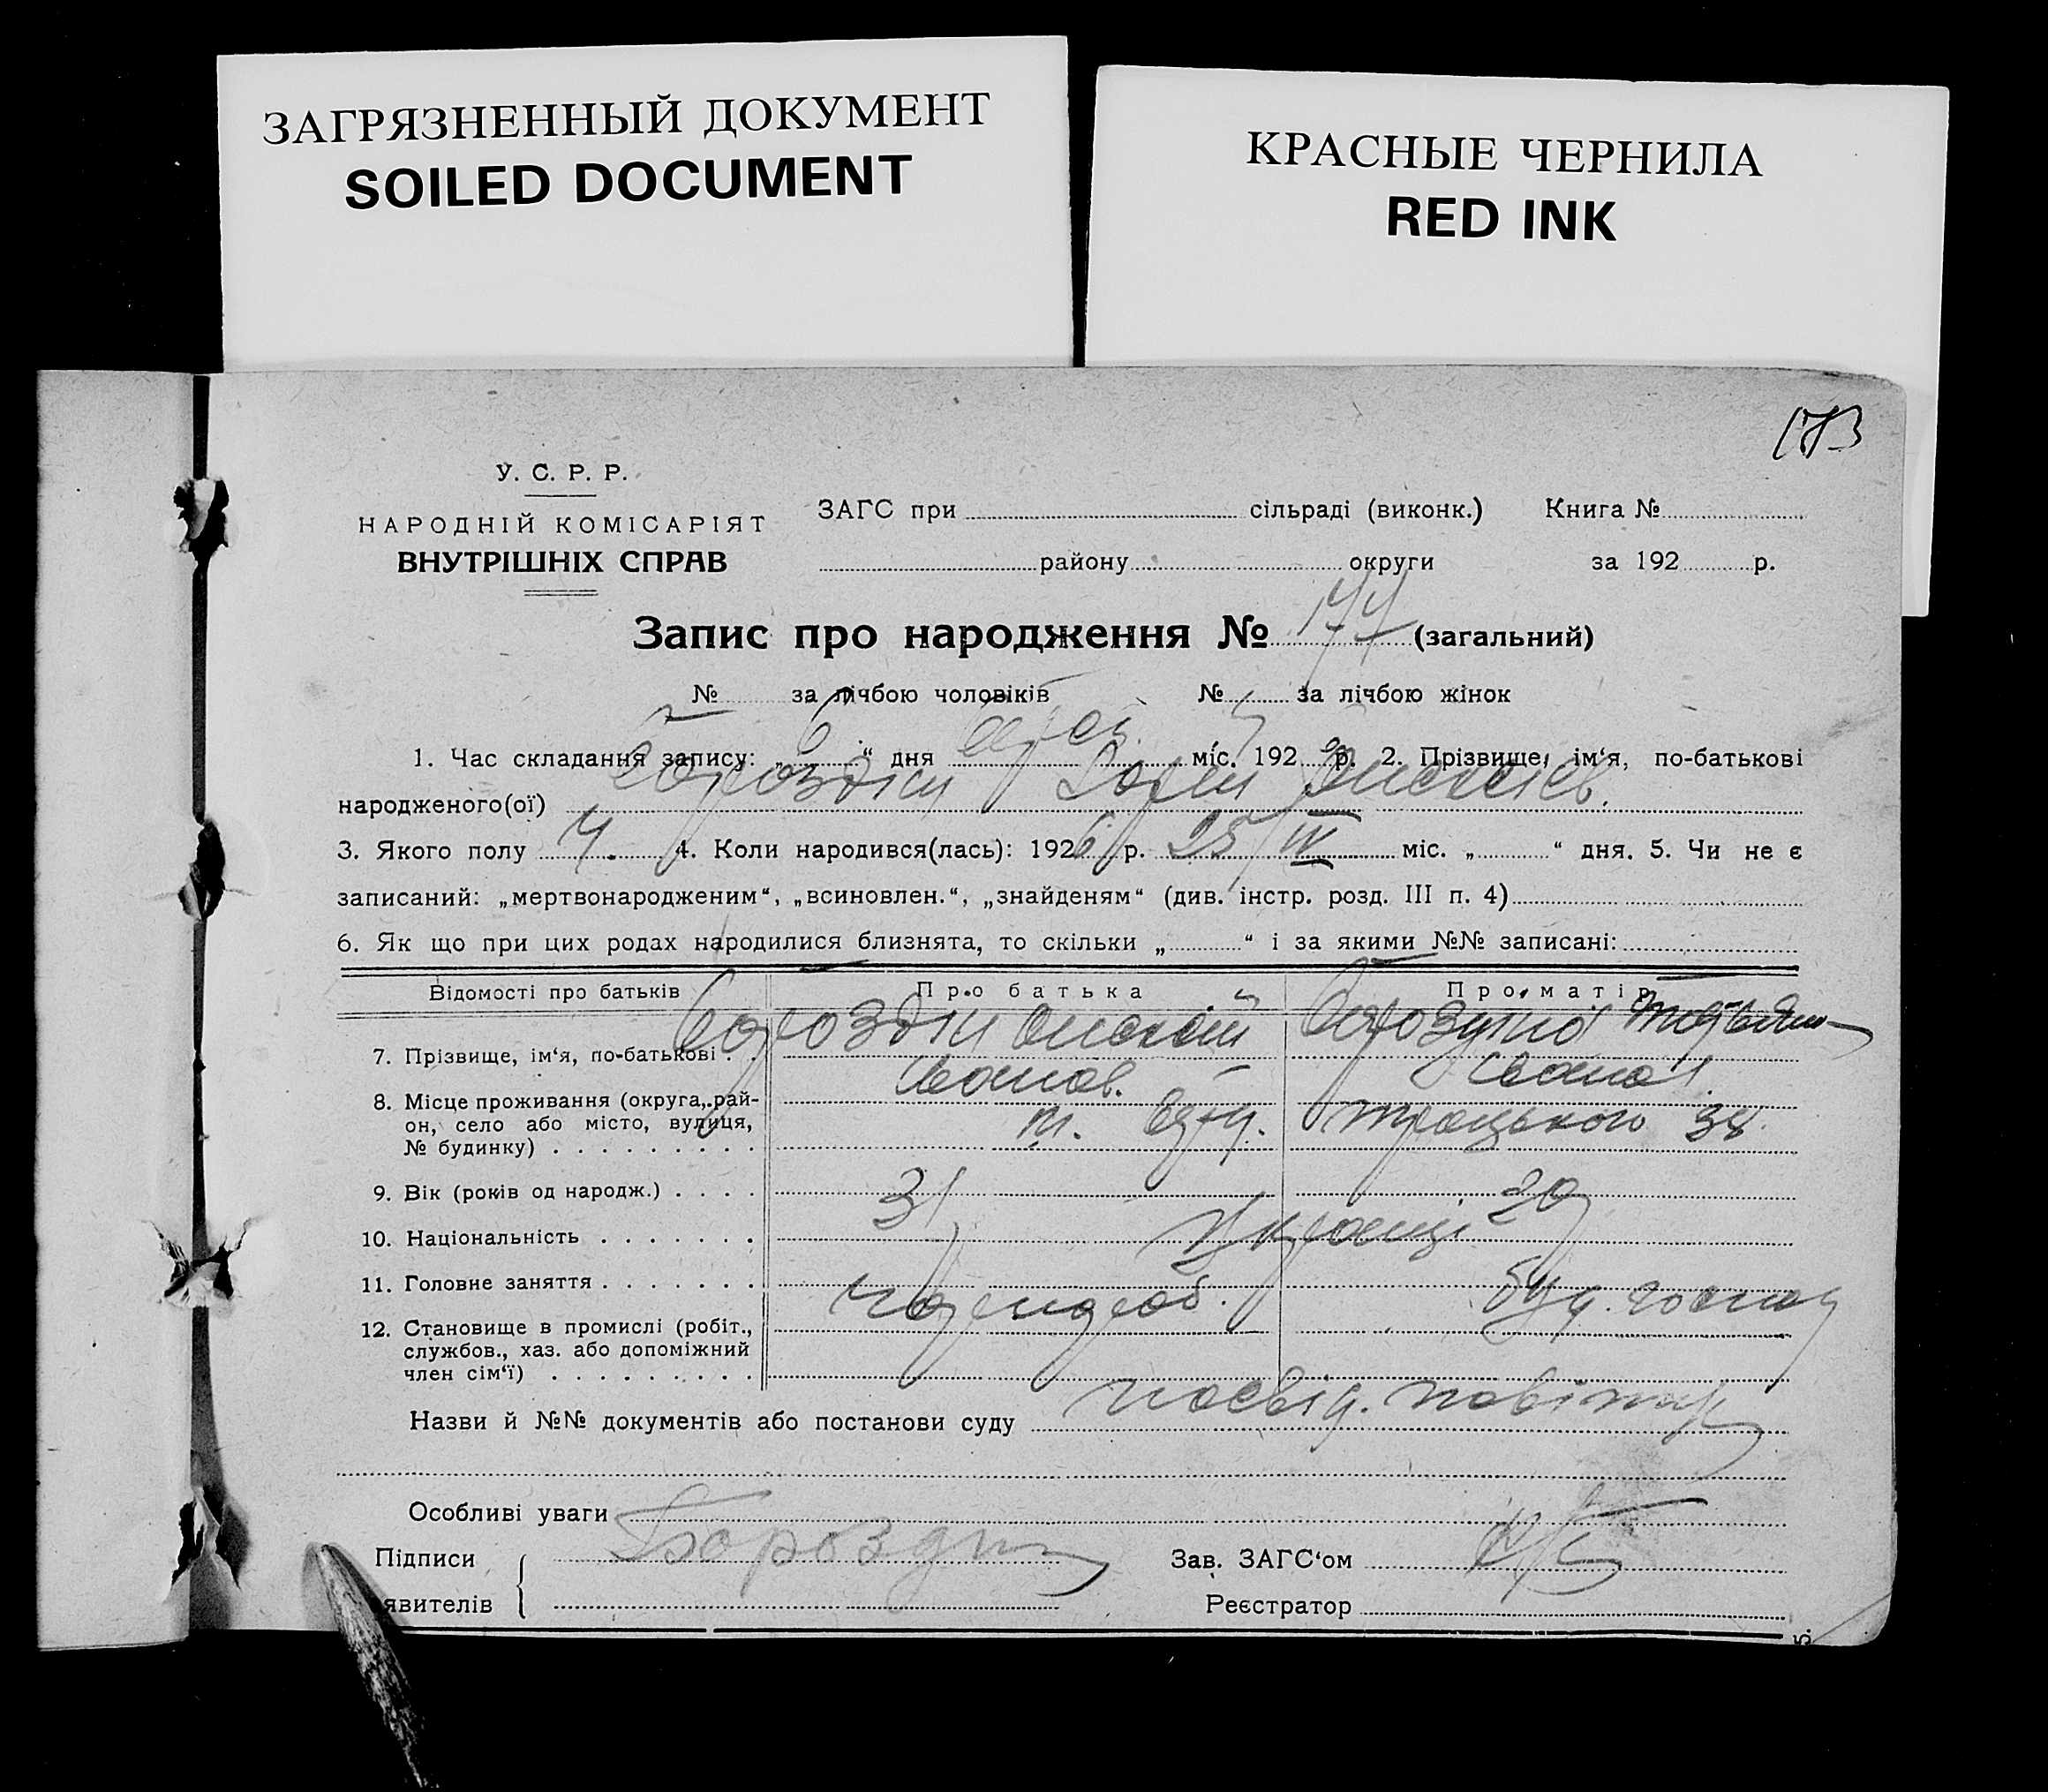 ЗАГРЯЗНЕННЫЙ ДОКУМЕНТ
SOILED DOCUMENT
КРАСНЫЕ ЧЕРНИЛА
RED INK
173
У. С. Р. Р.
НАРОДНІЙ КОМІСАРІЯТ
ВНУТРІШНІХ СПРАВ
ЗАГС при сільраді (виконк.) Книга №
району округи за 192 р.
Запис про народження № 177 (загальний)
№ за лічбою чоловіків № за лічбою жінок
1. Час складання запису: „ 6 “ дня міс. 192 р. 2. Прізвище, ім‘я, по-батькові
народженого(ої) Бороздин
3. Якого полу Ч. 4. Коли народився(лась): 1926 р. 25/IV міс. „ “ дня. 5. Чи не є
записаний: „мертвонародженим“, „всиновлен.“, „знайденям“ (див. інстр. розд. III п. 4)
6. Як що при цих родах народилися близнята, то скільки „ “ і за якими №№ записані:
Відомості про батьків Про батька Про матір
7. Прізвище, ім‘я, по-батькові Бороздин Бороздина
Іванов. Іванов.
8. Місце проживання (округа, рай-
он, село або місто, вулиця, м. Троцького 38
№ будинку)
9. Вік (років од народж.) 31 29
10. Національність Українці
11. Головне заняття
12. Становище в промислі (робіт.,
службов., хаз. або допоміжний
член сім‘ї)
Назви й №№ документів або постанови суду посвід. повітух
Особливі уваги
Підписи Бороздин Зав. ЗАГС‘ом
явителів Реєстратор
5.